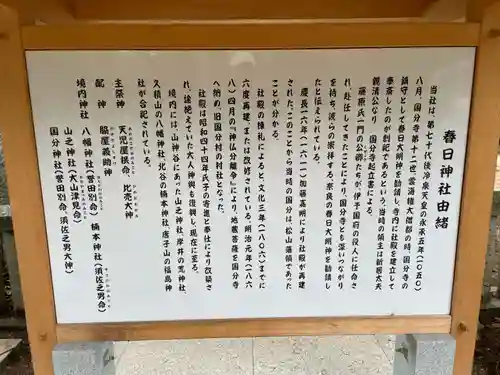 春日神社由緒
当社は第七十代後冷泉天皇の永承五年（一〇五〇）
八月、国分寺第十二世、雲清権大僧都の時、国分寺の
鎮守として春日大明神を勧請し、寺内に社殿を建立して
奉斎したのが創記であるという。当時の領主は新居太夫
親清公なり　国分寺起立書による。
藤原氏一門の公卿たちが、伊予国府の役人に任命さ
れ、赴任してきたことにより、国分寺とも深いつながり
を持ち、彼らの崇拝する、奈良の春日大明神を勧請し
たと伝えられている。
慶長一六年（一六一一）加藤嘉明により社殿が再建
された。このことから当時の国分は、松山藩領であった
ことが分かる。
社殿の棟札によると、文化三年（一八〇六）までに
六度再建、または改修されている。明治元年（一八六
八）四月の『神仏分離令』により、地蔵菩薩を国分寺
へ納め、旧国分村の村社となった。
社殿は昭和四十四年氏子の寄進と奉仕により改築さ
れ、途絶えていた大人神輿も復興し、現在に至る。
境内には、山神谷にあった山之神社、岸井の荒神社、
久積山の八幡神社、北谷の楠本神社、唐子山の福島神
社が合記されている。
主祭神　天児屋根命、比売大神
配　神　脇屋義助神
境内神社　八幡神社（誉田別命）楠本神社（須佐之男命）
山之神社（大山津見命）
国分神社（誉田別命　須佐之男大神）